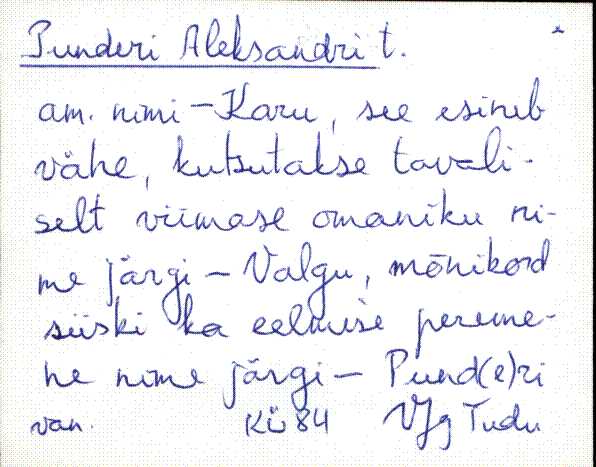 Punderi Aleksandri t.
am. nimi – Karu, see esineb
vähe, kutsutakse tavali-
selt viimase omaniku ni-
me järgi – Valgu, mõnikord
siiski ka eelmise pereme-
he nime järgi – Pund(e)ri
van. KÜ 84 VJg Tudu